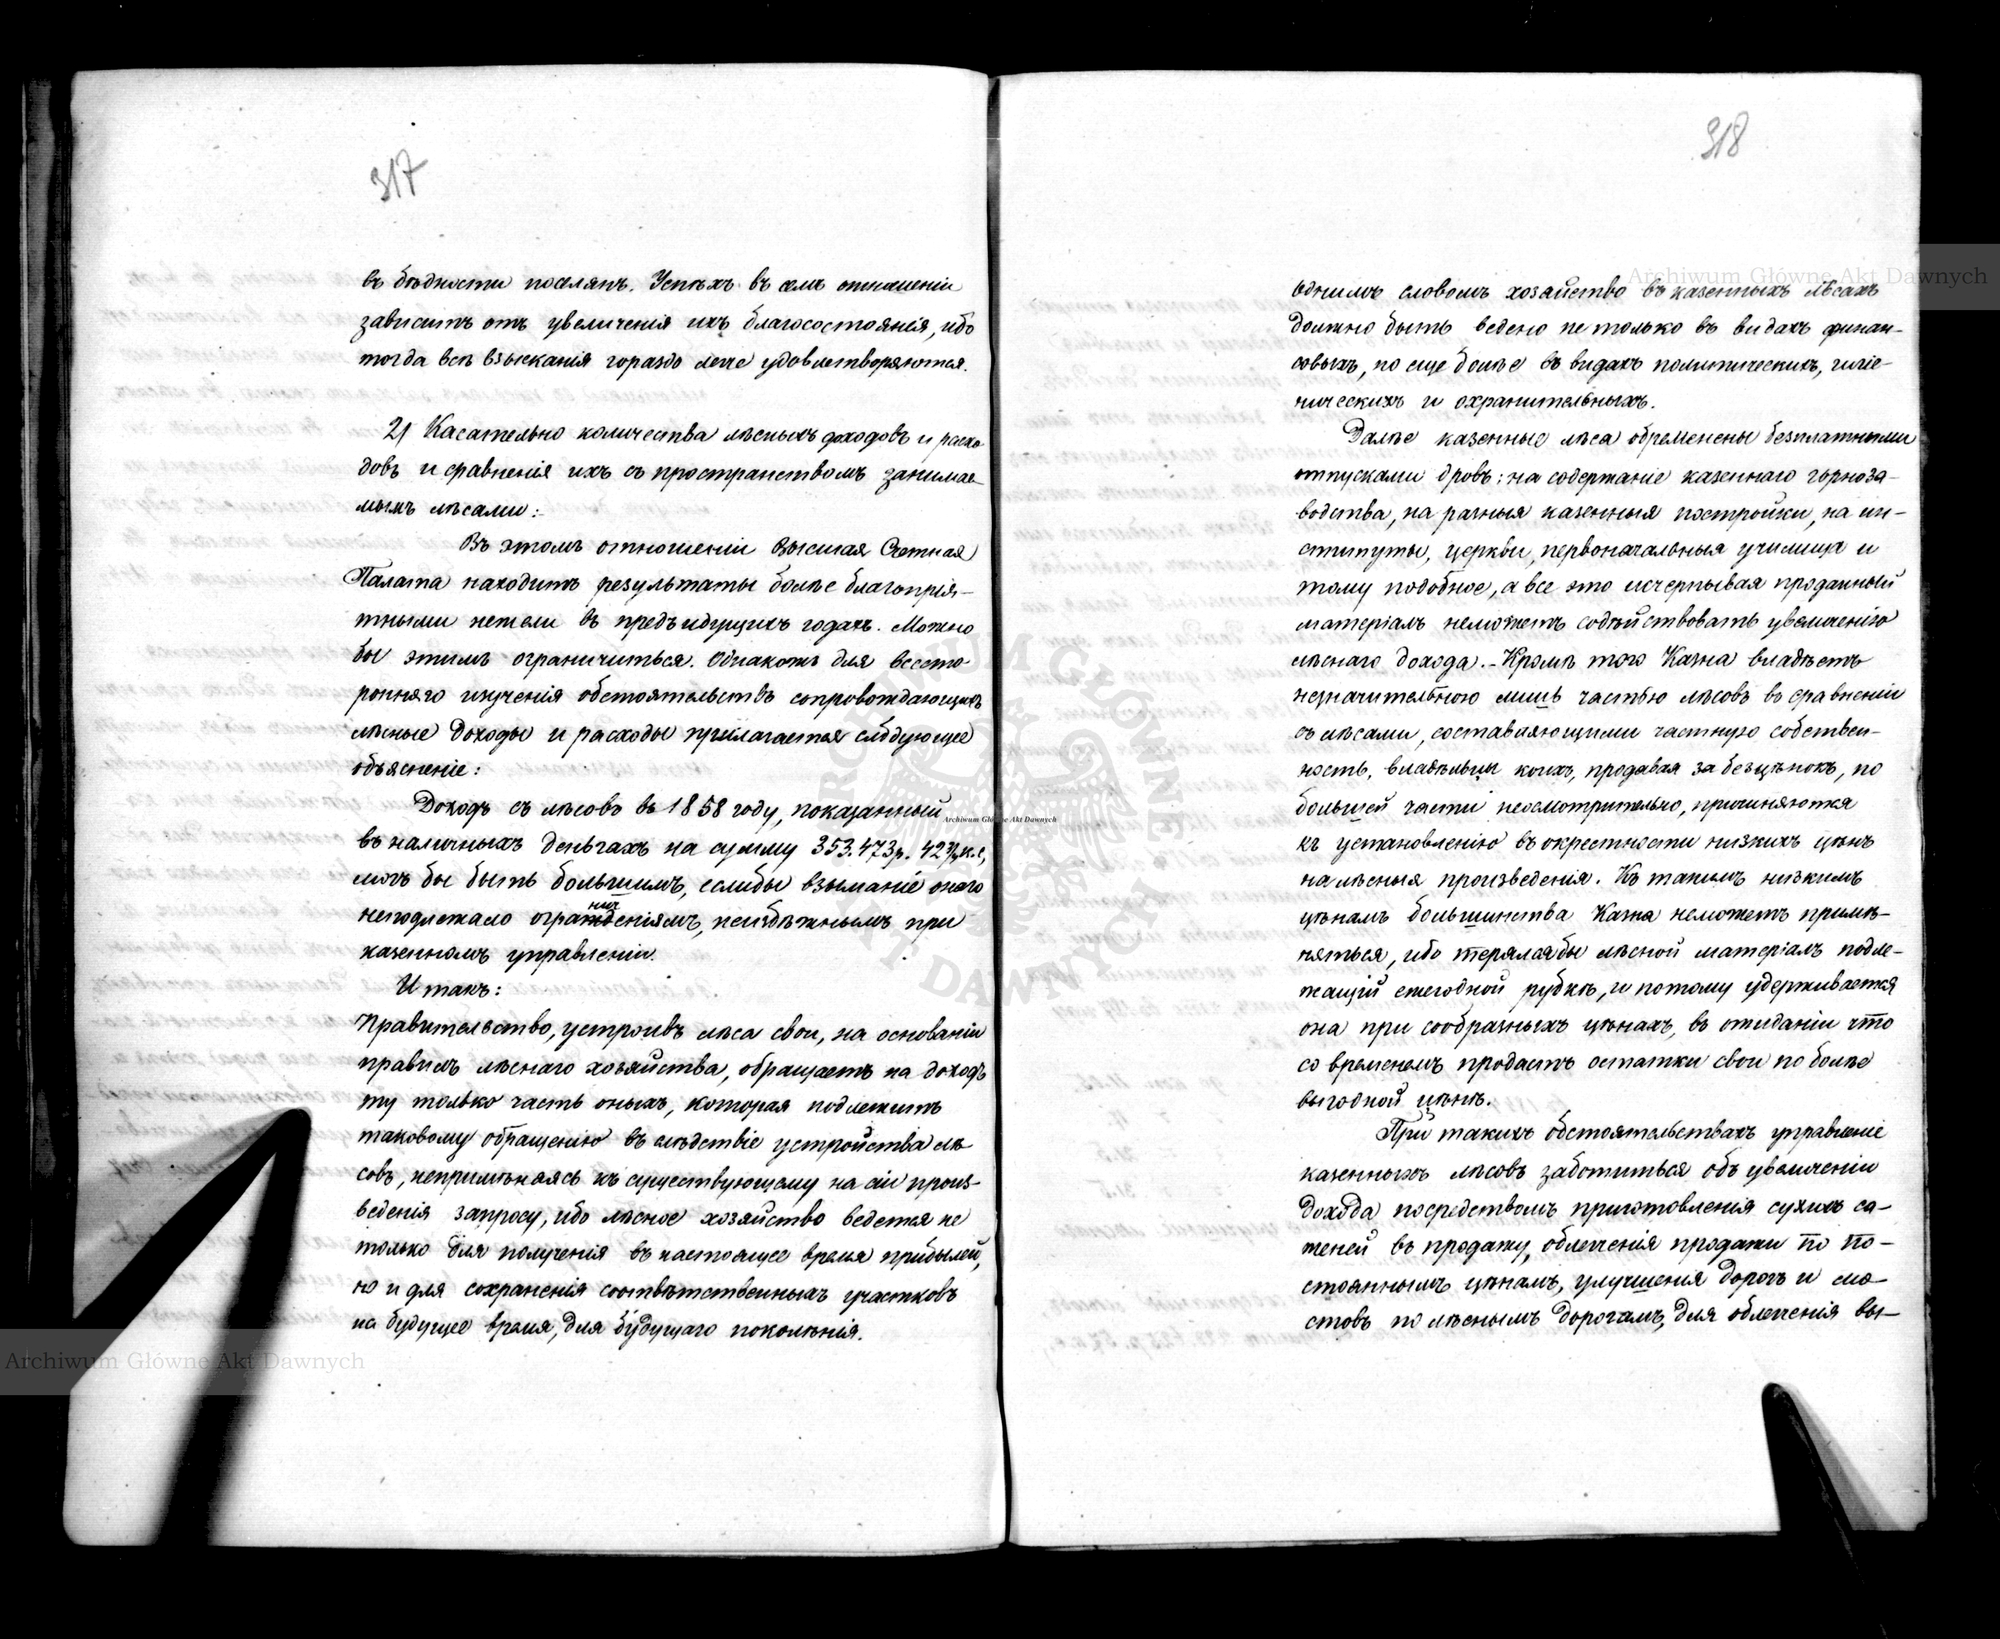 317
въ бѣдности поселянъ. Успѣхъ въ семъ отношеніи
зависитъ отъ увеличенія ихъ благосостоянія, ибо
тогда всѣ взысканія гораздо легче удовлетворяются.
2) Касательно количества лѣсныхъ доходовъ и расхо-
довъ и сравненія ихъ съ пространствомъ занимае-
мымъ лѣсами:
Въ этомъ отношеніи Высшая Счетная
Палата находитъ результаты болѣе благопрія-
тными нежели въ предъидущихъ годахъ. Можно
бы этимъ ограничиться. Однакожъ для всесто-
ронняго изученія обстоятельствъ сопровождающихъ
лѣсные доходы и расходы прилагается слѣдующее
объясненіе:
Доходъ съ лѣсовъ въ 1858 году, показанный
въ наличныхъ деньгахъ на сумму 353.473 р. 42½ к.с,
могъ бы быть большимъ, еслибы взыманіе онаго
неподлежало ограниченіямъ, неизбѣжнымъ при
казенномъ управленіи.
И такъ:
Правительство, устроивъ лѣса свои, на основаніи
правилъ лѣснаго хозяйства, обращаетъ на доходъ
ту только часть оныхъ, которая подлежитъ
таковому обращенію въ слѣдствіе устройства лѣ
совъ, непримѣняясь къ существующему на сіи произ-
веденія запросу, ибо лѣсное хозяйство ведется не
только для полученія въ настоящее время прибылей,
но и для сохраненія соотвѣтственныхъ участковъ
на будущее время, для будущаго поколѣнія.
318
однимъ словомъ хозяйство въ казенныхъ лѣсахъ
должно быть ведено не только въ видахъ финан-
совыхъ, но еще болѣе въ видахъ политическихъ, гигіе-
ническихъ и охранительныхъ.
Далѣе казенные лѣса обременены безплатными
отпусками дровъ: на содержаніе казеннаго горноза-
водства, на разныя казенныя постройки, на ин-
ституты, церкви, первоначальныя училища и
тому подобное, а все это исчерпывая продажный
матеріалъ неможетъ содѣйствовать увеличенію
лѣснаго дохода. - Кромѣ того Казна владѣетъ
незначительною лишь частью лѣсовъ въ сравненіи
съ лѣсами, составляющими частную собствен-
ность, владѣльцы коихъ, продавая за безцѣнокъ, по
большей части неосмотрительно, причиняются
къ установленію въ окрестности низкихъ цѣнъ
на лѣсныя произведенія. Къ такимъ низкимъ
цѣнамъ большинства Казна неможетъ примѣ-
няться, ибо терялабы лѣсной матеріалъ подле-
жащій ежегодной рубкѣ, и потому удерживается
она при сообразныхъ цѣнахъ, въ ожиданіи что
со временемъ продастъ остатки свои по болѣе
выгодной цѣнѣ.
При такихъ обстоятельствахъ управленіе
казенныхъ лѣсовъ заботиться объ увеличеніи
дохода посредствомъ приготовленія сухихъ са-
женей въ продажу, облегченія продажи по по-
стояннымъ цѣнамъ, улучшенія дорогъ и мо-
стовъ по лѣснымъ дорогамъ, для облегченія вы-
Archiwum Główne Akt Dawnych
Archiwum Główne Akt Dawnych
Archiwum Główne Akt Dawnych